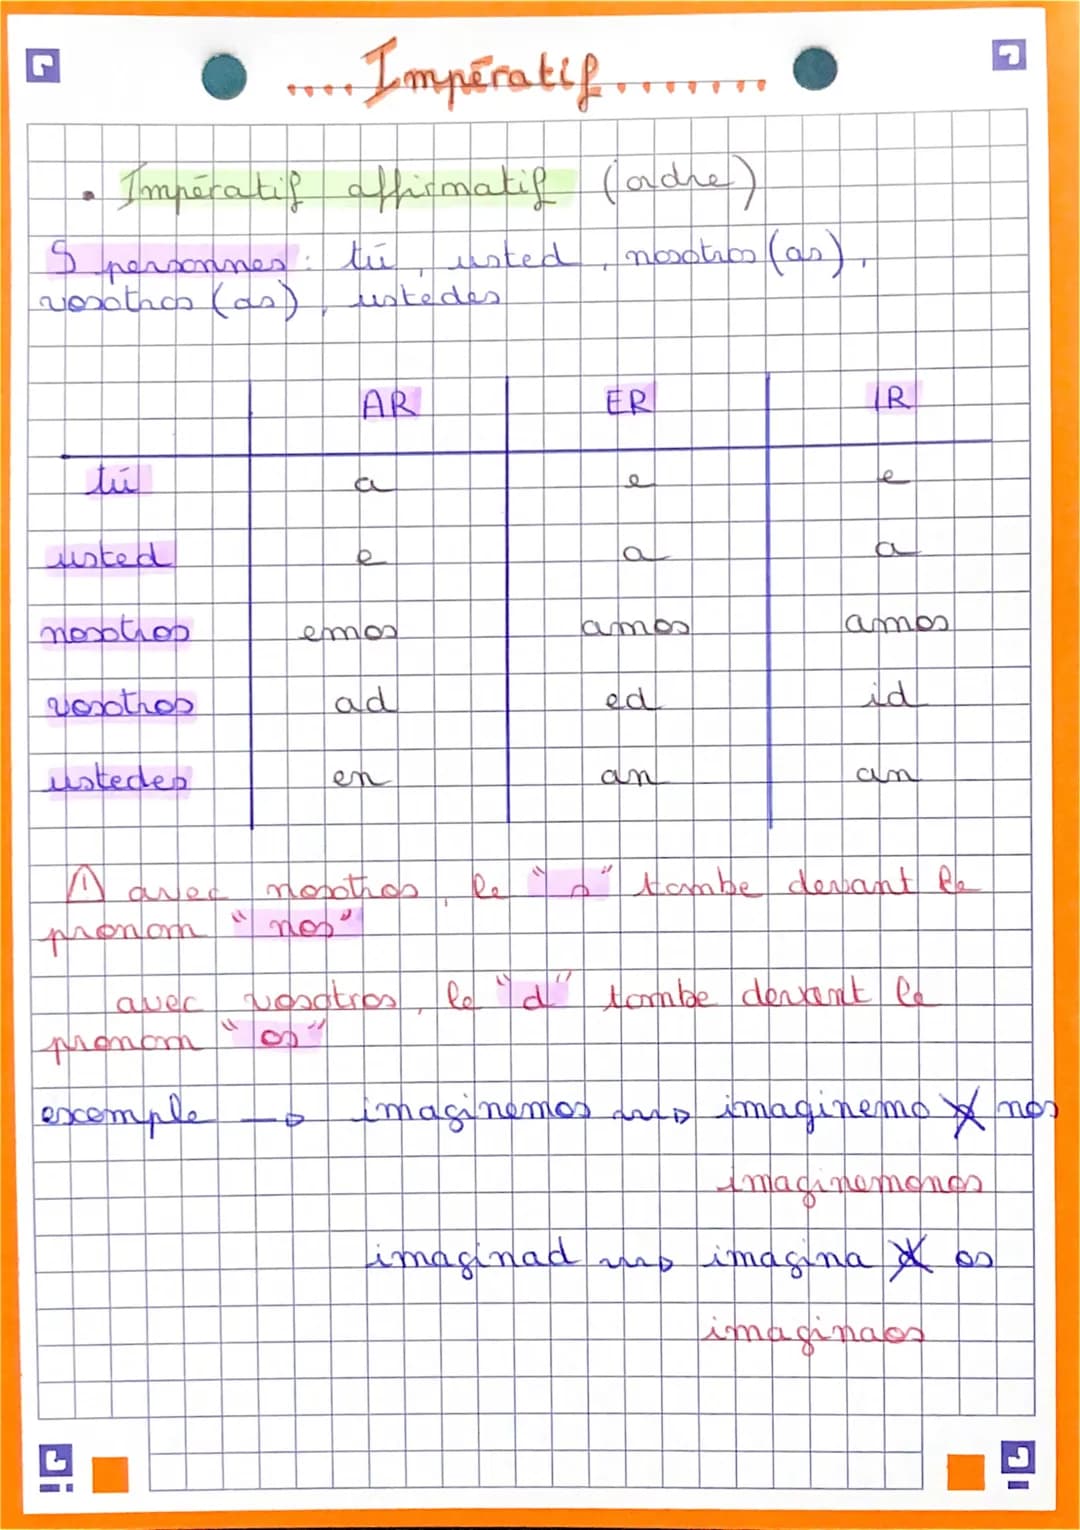 .... Impératif ........
• Impératif affirmatif (ordre)
5 personnes : tú, usted, nosotros (as),
vosotros (as), ustedes
AR ER IR
tú a e e
usted e a a
nosotros emos amos amos
vosotros ad ed id
ustedes en an an
⚠ avec nosotros, le "s" tombe devant le
pronom "nos"
avec vosotros, le "d" tombe devant le
pronom "os"
exemple → imaginemos → imaginemo s nos
imaginemonos
imaginad → imagina d os
imaginaos